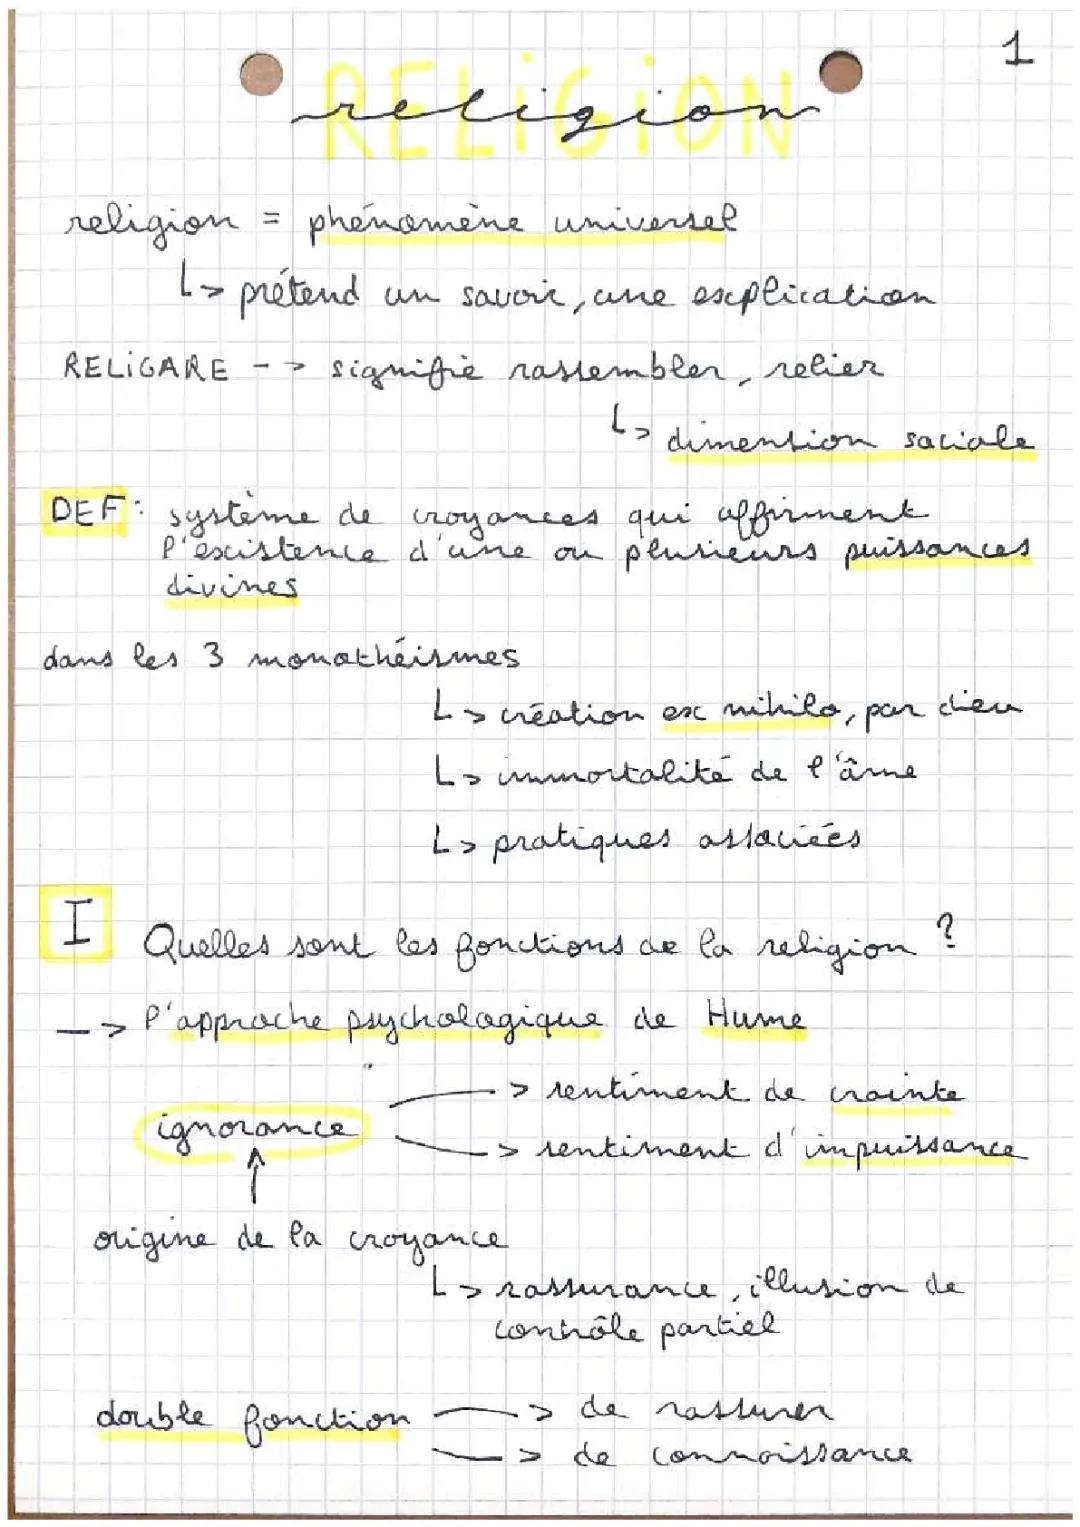 1
RELIGION
religion
religion = phénomène universel
↳ prétend un savoir, une explication
RELIGARE --> signifie rassembler, relier
↳ dimention sociale
DEF : système de croyances qui affirment
l'existence d'une ou plusieurs puissances
divines
dans les 3 monothéismes
↳ création ex nihilo, par dieu
↳ immortalité de l'âme
↳ pratiques associées
I Quelles sont les fonctions de la religion ?
--> l'approche psychologique de Hume
-> sentiment de crainte
ignorance
-> sentiment d'impuissance
↑
origine de la croyance
↳ rassurance, illusion de
contrôle partiel
double fonction -> de rassurer
-> de connaissance